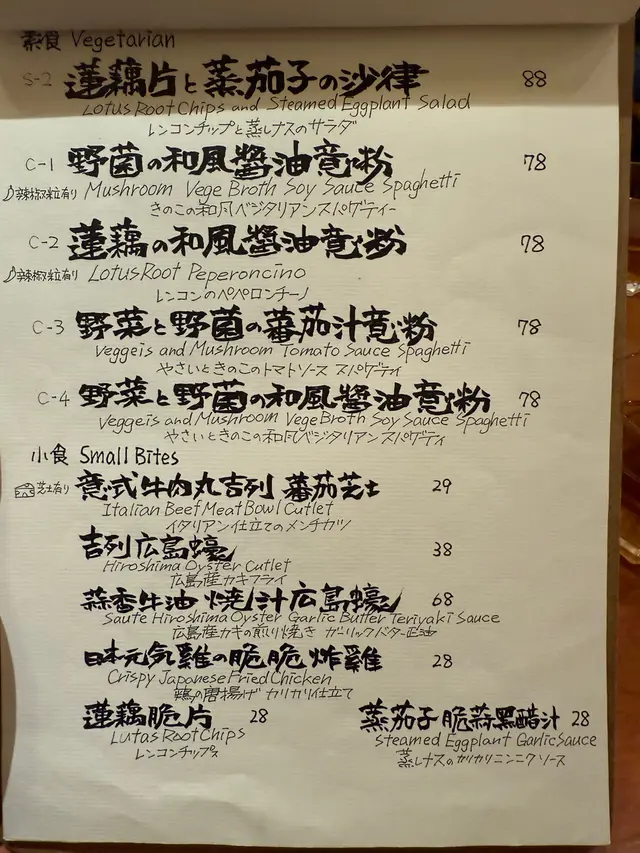 素食 Vegetarian
S-2 蓮藕片と蒸茄子の沙律 88
Lotus Root Chips and Steamed Eggplant Salad
レンコンチップと蒸しナスのサラダ
C-1 野菌の和風醬油意粉 78
辣椒粒有り Mushroom Vege Broth Soy Sauce Spaghetti
きのこの和風ベジタリアンスパゲティー
C-2 蓮藕の和風醬油意粉 78
辣椒粒有り Lotus Root Peperoncino
レンコンのペペロンチーノ
C-3 野菜と野菌の蕃茄汁意粉 78
Veggeis and Mushroom Tomato Sauce Spaghetti
やさいときのこのトマトソース スパゲティ
C-4 野菜と野菌の和風醬油意粉 78
Veggeis and Mushroom Vege Broth Soy Sauce Spaghetti
やさいときのこの和風ベジタリアンスパゲティ
小食 Small Bites
芝士有り 意式牛肉丸吉列 蕃茄芝士 29
Italian Beef Meat Bowl Cutlet
イタリアン仕立てのメンチカツ
吉列広島蠔 38
Hiroshima Oyster Cutlet
広島産カキフライ
蒜香牛油 燒汁広島蠔 68
Saute Hiroshima Oyster Garlic Butter Teriyaki Sauce
広島産カキの煎り焼き ガーリックバター正油
日本元気雞の脆脆炸雞 28
Crispy Japanese Fried Chicken
鶏の唐揚げ カリカリ仕立て
蓮藕脆片 28
Lutas Root Chips
レンコンチップス
蒸茄子 脆蒜黑醋汁 28
Steamed Eggplant Garlic Sauce
蒸しナスのカリカリニンニクソース